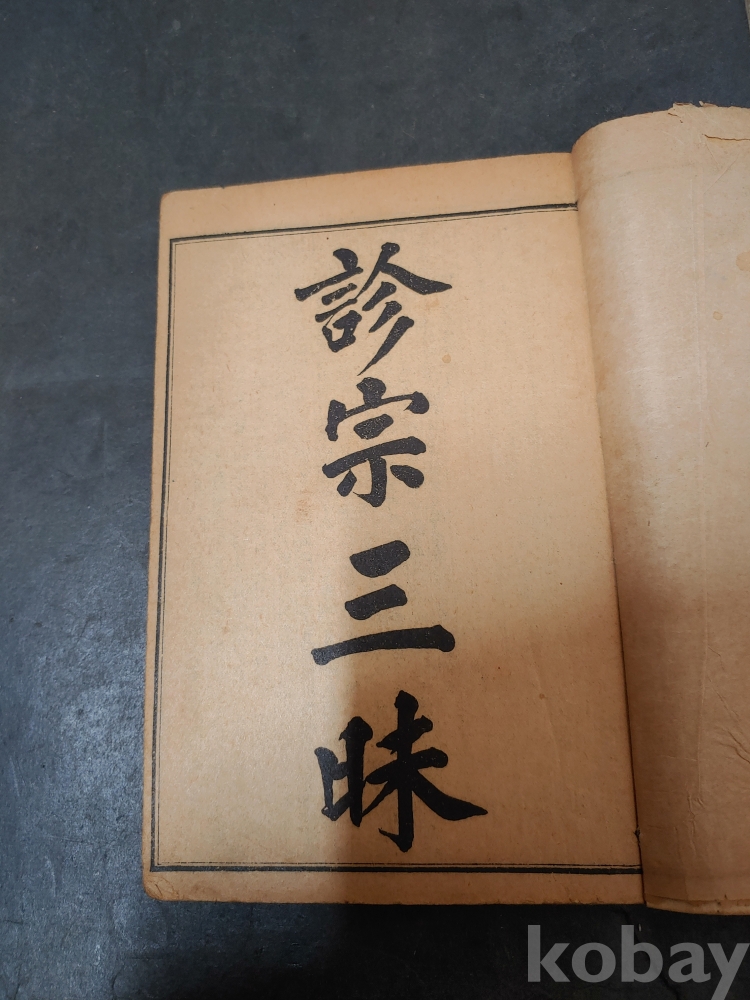 診宗三昧
kobay